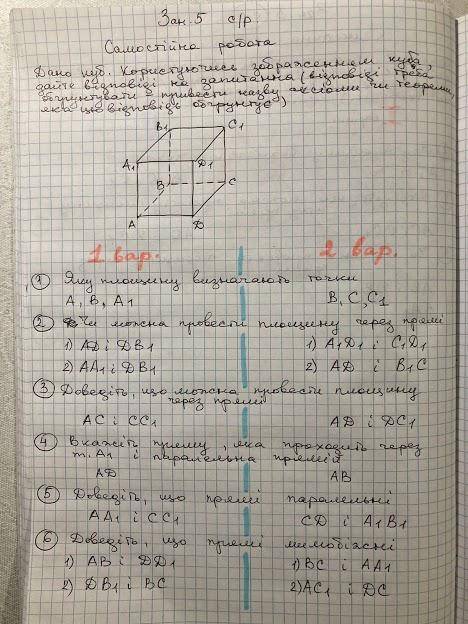 Зан. 5 с/р.
Самостійна робота
Дано куб. Користуючись зображенням куба,
дайте відповіді на запитання (відповіді треба
обгрунтувати - привести назву аксіоми чи теореми,
яка цю відповідь обгрунтує)
B1 C1
A1 D1
B C
A D
1 вар. 2 вар.
1 Яку площину визначають точки
A, B, A1 B, C, C1
2 Чи можна провести площину через прямі
1) AD і DB1 1) A1D1 і C1D1
2) AA1 і DB1 2) AD і B1C
3 Доведіть, що можна провести площину
через прямі
AC і CC1 AD і DC1
4 Вкажіть пряму, яка проходить через
т. A1 і паралельна прямій
AD AB
5 Доведіть, що прямі паралельні
AA1 і CC1 CD і A1B1
6 Доведіть, що прямі мимобіжні
1) AB і DD1 1) BC і AA1
2) DB1 і BC 2) AC1 і DC